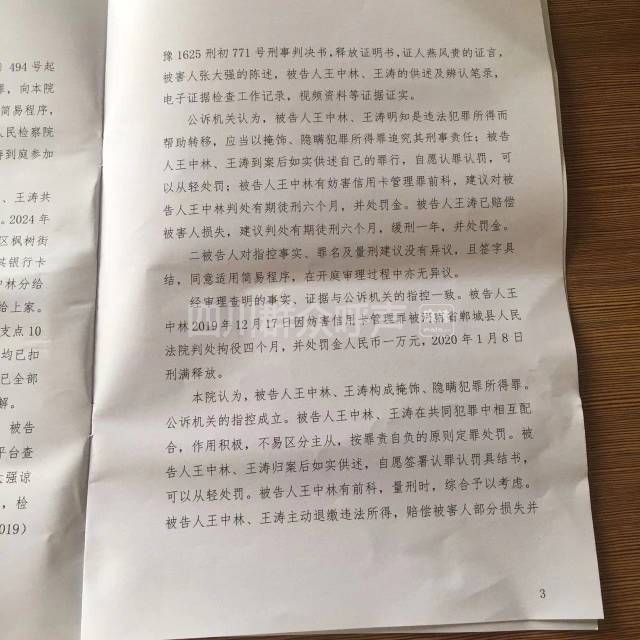 ) 494 号起
罪，向本院
简易程序，
人民检察院
寺到庭参加
、王涛共
。2024 年
区枫树街
其银行卡
林分给
给上家。
支点 10
均已扣
已全部
解。
被告
平台查
大强谅
，检
019)
豫 1625 刑初 771 号刑事判决书，释放证明书，证人燕风贵的证言，
被害人张大强的陈述，被告人王中林、王涛的供述及辨认笔录，
电子证据检查工作记录，视频资料等证据证实。
公诉机关认为，被告人王中林、王涛明知是违法犯罪所得而
帮助转移，应当以掩饰、隐瞒犯罪所得罪追究其刑事责任；被告
人王中林、王涛到案后如实供述自己的罪行，自愿认罪认罚，可
以从轻处罚；被告人王中林有妨害信用卡管理罪前科，建议对被
告人王中林判处有期徒刑六个月，并处罚金。被告人王涛已赔偿
被害人损失，建议判处有期徒刑六个月，缓刑一年，并处罚金。
二被告人对指控事实、罪名及量刑建议没有异议，且签字具
结，同意适用简易程序，在开庭审理过程中亦无异议。
经审理查明的事实、证据与公诉机关的指控一致。被告人王
中林 2019 年 12 月 17 日因妨害信用卡管理罪被河南省郸城县人民
法院判处拘役四个月，并处罚金人民币一万元，2020 年 1 月 8 日
刑满释放。
本院认为，被告人王中林、王涛构成掩饰、隐瞒犯罪所得罪。
公诉机关的指控成立。被告人王中林、王涛在共同犯罪中相互配
合，作用积极，不易区分主从，按罪责自负的原则定罪处罚。被
告人王中林、王涛归案后如实供述，自愿签署认罪认罚具结书，
可以从轻处罚。被告人王中林有前科，量刑时，综合予以考虑。
被告人王中林、王涛主动退缴违法所得，赔偿被害人部分损失并
3
四川群众呼声